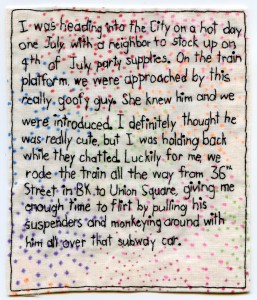 I was heading into the City on a hot day
one July with a neighbor to stock up on
4th of July party supplies. On the train
platform, we were approached by this
really goofy guy. She knew him and we
were introduced. I definitely thought he
was really cute, but I was holding back
while they chatted. Luckily for me we
rode the train all the way from 36th
Street in BK to Union Square, giving me
enough time to flirt by pulling his
suspenders and monkeying around with
him all over that subway car.